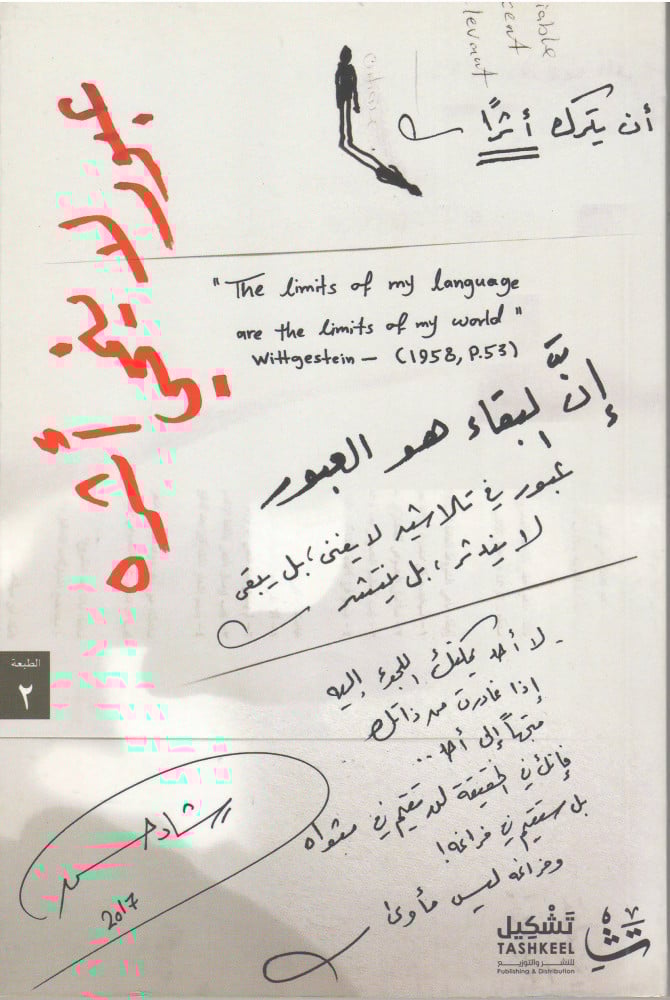 iable
cent
levant
أن يترك أثرًا
عبور لا أثره
"The limits of my language
are the limits of my world"
Wittgestein – (1958, P.53)
إنَّ البقاء هو العبور
عبور في تلاشيه لا يفنى، بل يبقى
لا يندثر، بل ينتشر
- لا أحد يمكنك اللجوء إليه
إذا غادرت من ذاتك
متجهاً إلى أحد..
فإنك في الحقيقة لن تقيم في مثواه
بل ستقيم في فراغه!
وفراغه ليس مأوى
رشاد حسن
2017
الطبعة
٢
تَشْكِيل
TASHKEEL
للنشر والتوزيع
Publishing & Distribution